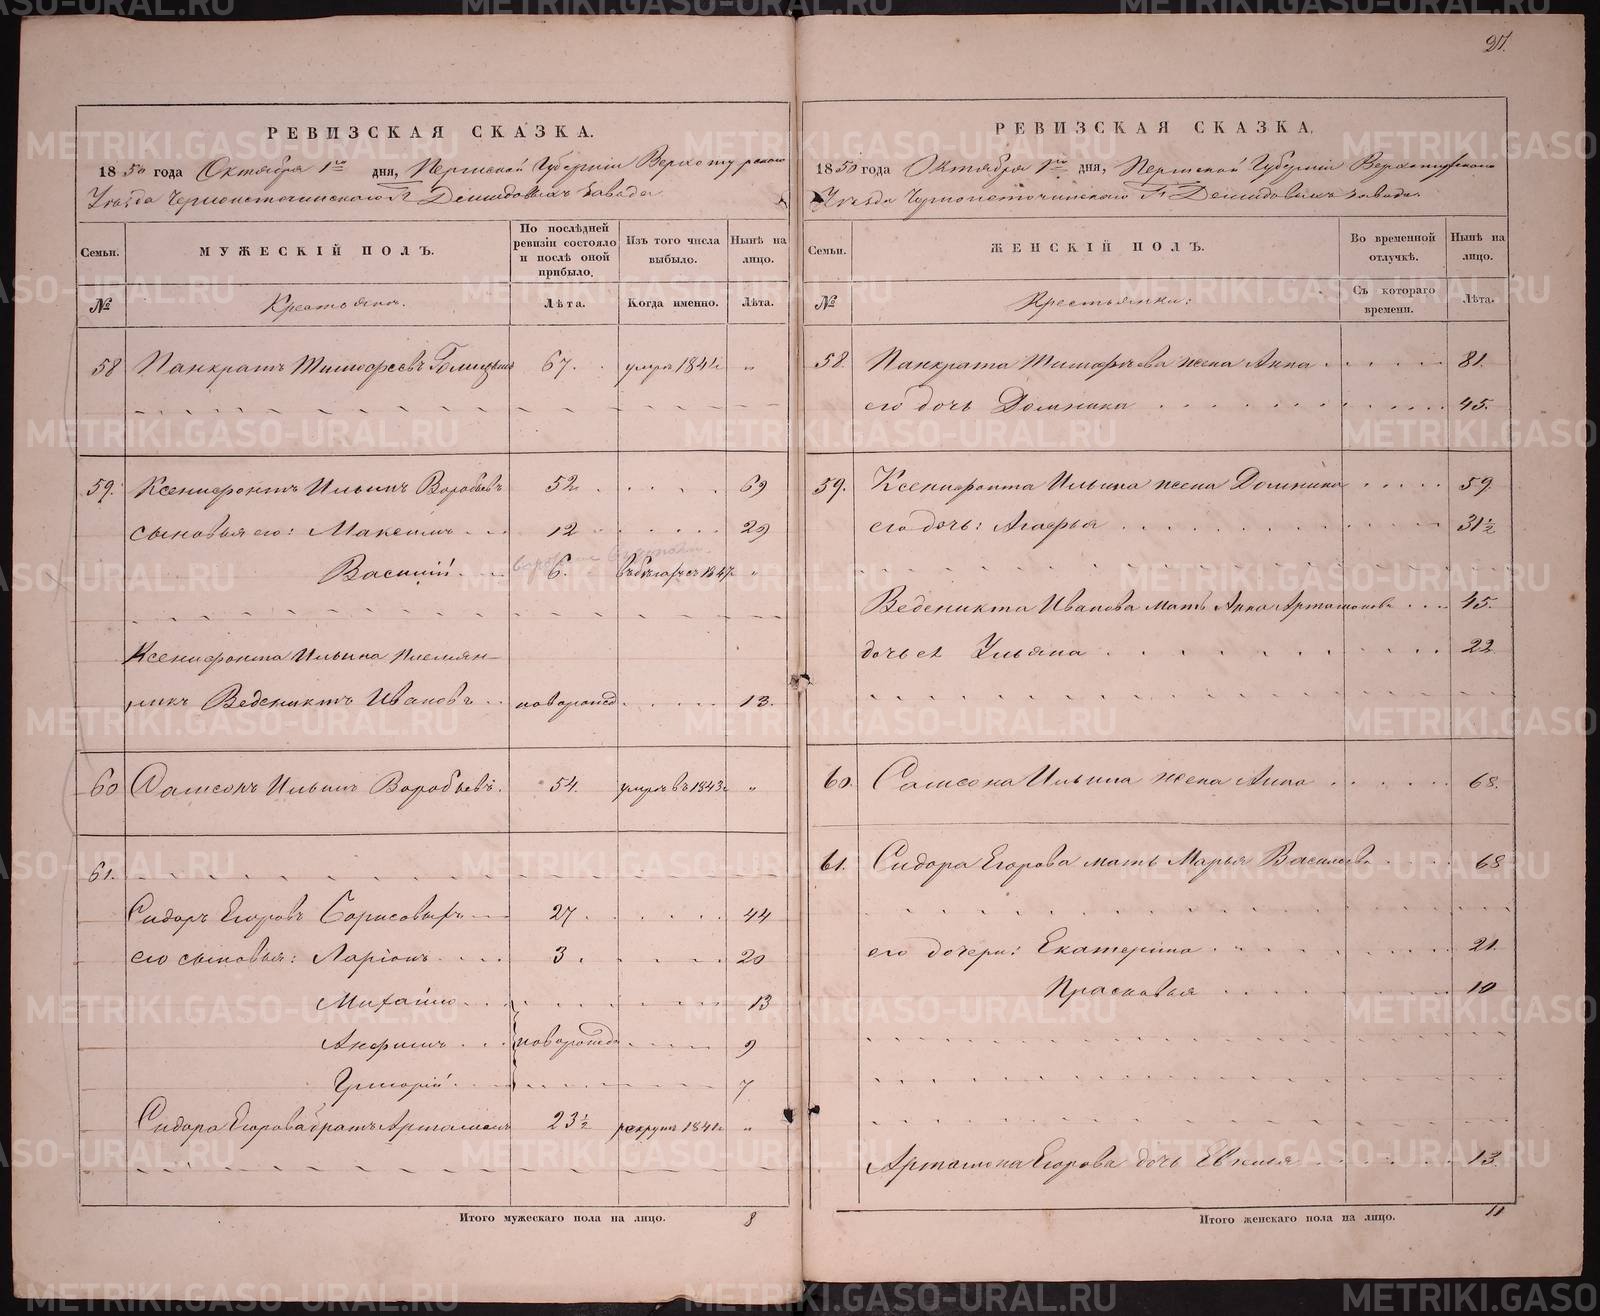 27.
РЕВИЗСКАЯ СКАЗКА.
1850 года Октября 1го дня, Пермской Губерніи Верхотурскаго
Уезда Черноисточинскаго Г. Демидовыхъ завода
Семьи.
МУЖЕСКІЙ ПОЛЪ.
По послѣдней ревизіи состояло и послѣ оной прибыло.
Изъ того числа выбыло.
Нынѣ на лицо.
№
Крестьяне.
Лѣта.
Когда именно.
Лѣта.
58 Панкратъ Тимофеевъ 67. умре 1841 "
59. Ксенофонтъ Ильинъ Воробьевъ 52 69
сыновья его: Максимъ 12 29
Василій 6. въ бѣгахъ съ 1847 "
Ксенофонта Ильина племян-
никъ Веденихтъ Ивановъ новорожд 13.
60 Самсонъ Ильинъ Воробьевъ. 54. умре въ 1843 "
61.
Сидоръ Егоровъ Борисовыхъ 27 44
его сыновья: Ларіонъ 3. 20
Михайло 13
Акефимъ новорожд 9
Григорій 7
Сидора Егорова братъ Артамонъ 23½ рекрутъ 1841 "
Итого мужескаго пола на лицо. 8
РЕВИЗСКАЯ СКАЗКА.
1850 года Октября 1го дня, Пермской Губерніи Верхотурскаго
Уезда Черноисточинскаго Г. Демидовыхъ завода.
Семьи.
ЖЕНСКІЙ ПОЛЪ.
Во временной отлучкѣ.
Нынѣ на лицо.
№
Крестьянки:
Съ котораго времени.
Лѣта.
58. Панкрата Тимофеева жена Анна 81.
его дочь Домника 45.
59. Ксенофонта Ильина жена Домника 59.
его дочь: Агафья 31½
Веденихта Иванова мать Анна Артамонова 45.
дочь ея Ульяна 22
60. Самсона Ильина жена Анна 68.
61. Сидора Егорова мать Марья Васильева 68
его дочери: Екатерина 21.
Прасковья 10
Артамона Егорова дочь Евгенія 13.
Итого женскаго пола на лицо. 11
METRIKI.GASO-URAL.RU